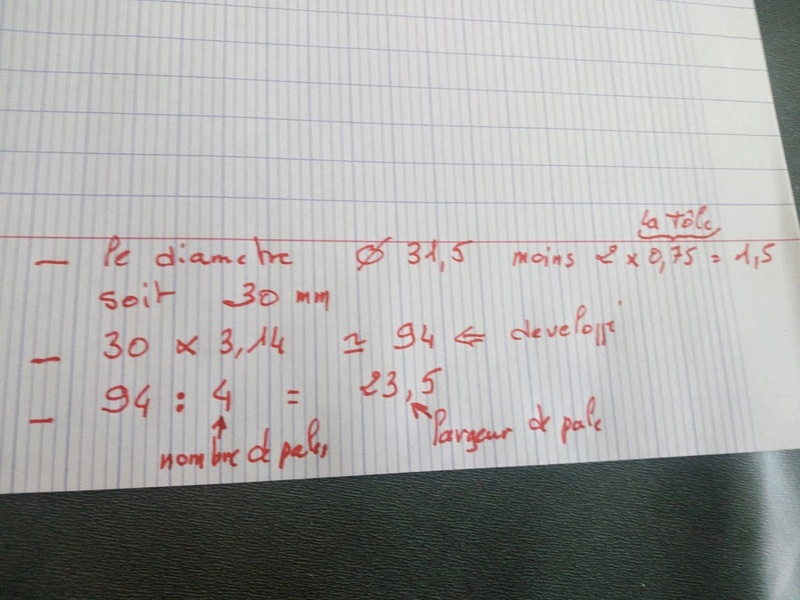 la tôle
— le diametre ø 31,5 moins 2 x 0,75 = 1,5
soit 30 mm
— 30 x 3,14 ≃ 94 ⇐ developpé
— 94 : 4 = 23,5
nombre de pales
largeur de pale